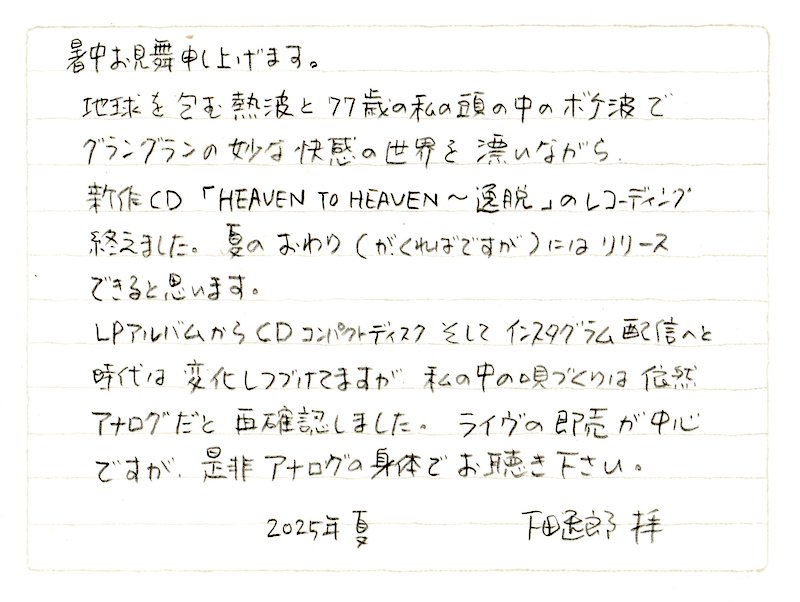 暑中お見舞申し上げます。
地球を包む熱波と77歳の私の頭の中のボケ波で
グラングランの妙な快感の世界を漂いながら、
新作CD「HEAVEN TO HEAVEN～逸脱」のレコーディング
終えました。夏のおわり(がくればですが)にはリリース
できると思います。
LPアルバムからCDコンパクトディスクそしてインスタグラム配信へと
時代は変化しつづけてますが 私の中の唄づくりは依然
アナログだと再確認しました。ライヴの即売が中心
ですが、是非アナログの身体でお聴き下さい。
2025年夏 下田逸郎 拝